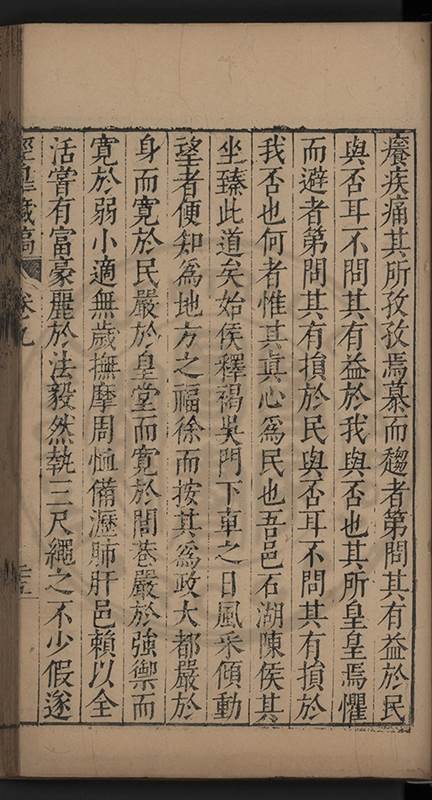 癢疾痛其所孜孜焉慕而趨者第問其有益於民
與否耳不問其有益於我與否也其所皇皇焉懼
而避者第問其有損於民與否耳不問其有損於
我否也何者惟其真心爲民也吾邑石湖陳侯其
坐臻此道矣始侯釋褐吳門下車之日風采傾動
望者便知爲地方之福徐而按其爲政大都嚴於
身而寛於民嚴於皇堂而寛於閭巷嚴於強禦而
寛於弱小適無歲撫摩周恤備瀝肺肝邑賴以全
活嘗有富豪麗於法毅然執三尺繩之不少假遂
涇臯藏稿
卷九